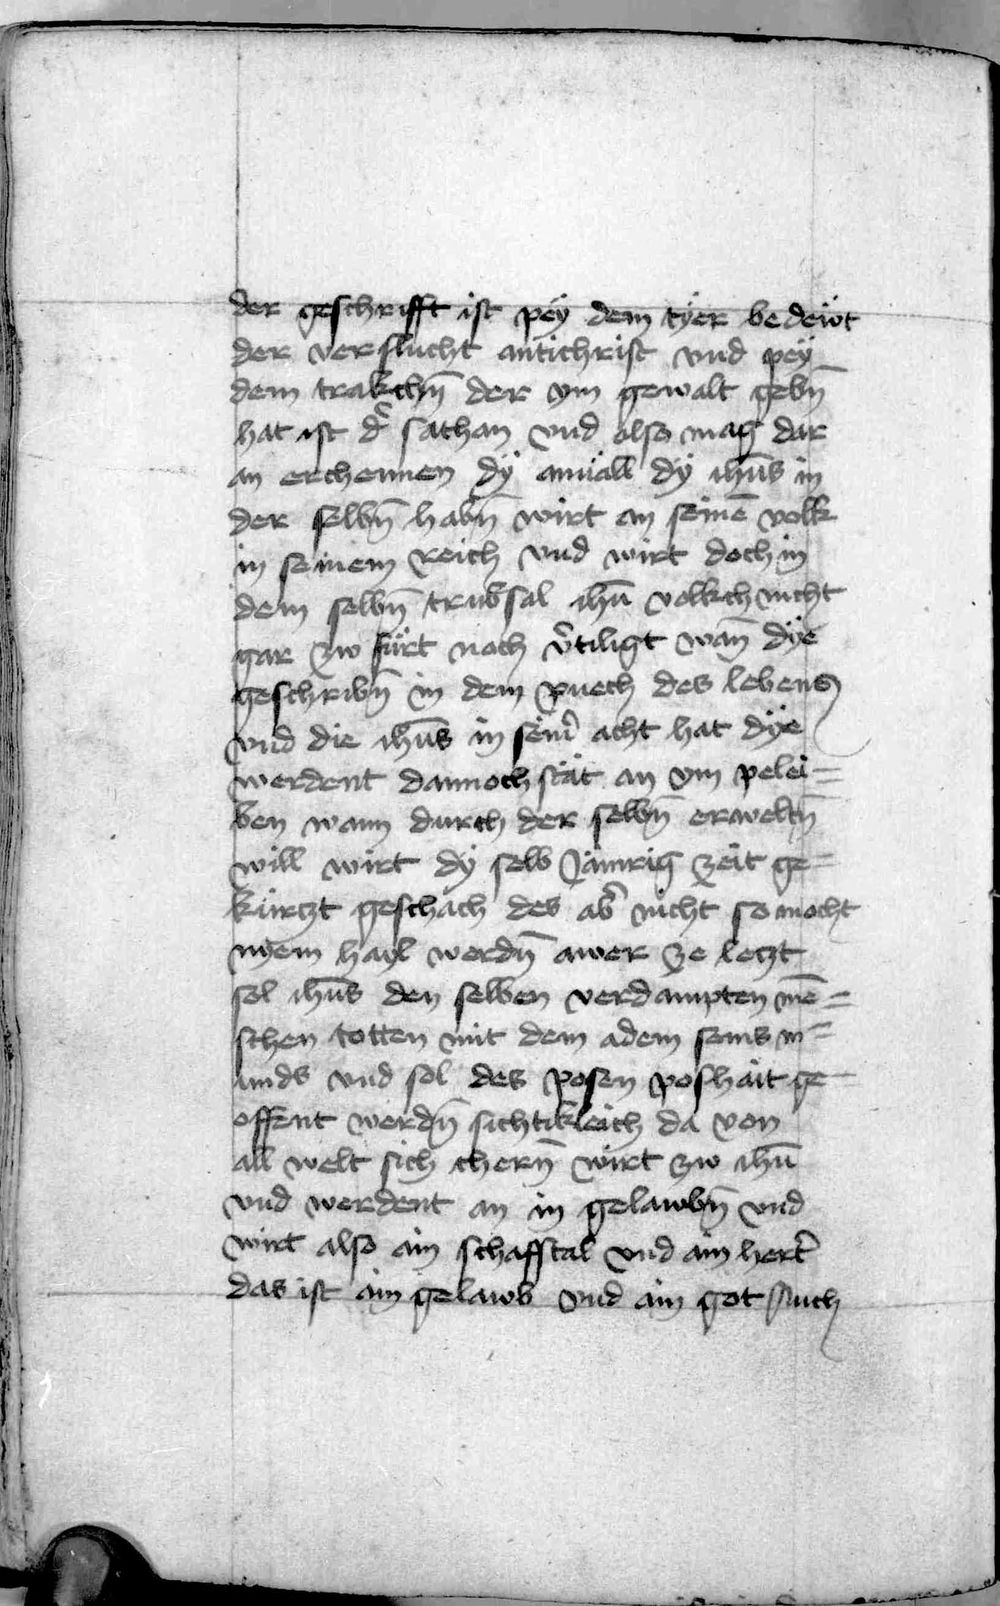 der geschrifft ist pëy dem tÿer bedeẅt
der verflucht antichrist vnd pëy
dem trakchn̄ der ym gewalt gebn̄
hat ist d̾ sathan vnd also mag dar
an erchennen dÿ anuäll dÿ ihūs in
der selbn̄ habn̄ wirt an seinē volk
in seinem reich vnd wirt doch in
dem selbn̄ trubsal ihū volkch nicht
gar zw fürt noch v̾tiligt wan̄ dÿe
geschribn̄ in dem puech des lebens
vnd die ihūs in sein̾ acht hat dÿe
werdent dannoch stät an ym pelei=
ben wann durch der selbn̄ erweltn̄
will wirt dÿ selb Jämrig zeit ge=
kürtzt geschäch des ab̾ nicht so mocht
nyem hayl werdn̄ awer ze letzt
sol ihūs den selben verdampten mē=
schen totten mit dem adem seins m=
unds vnd sol des posen poshait ge=
offent werdn̄ sichtikleich da von
all welt sich chern̄ wirt zw ihū
vnd werdent an in gelawbn̄ vnd
wirt also ain schafstal vnd ain hert̾
das ist ain gelawb vnd ain got Auch